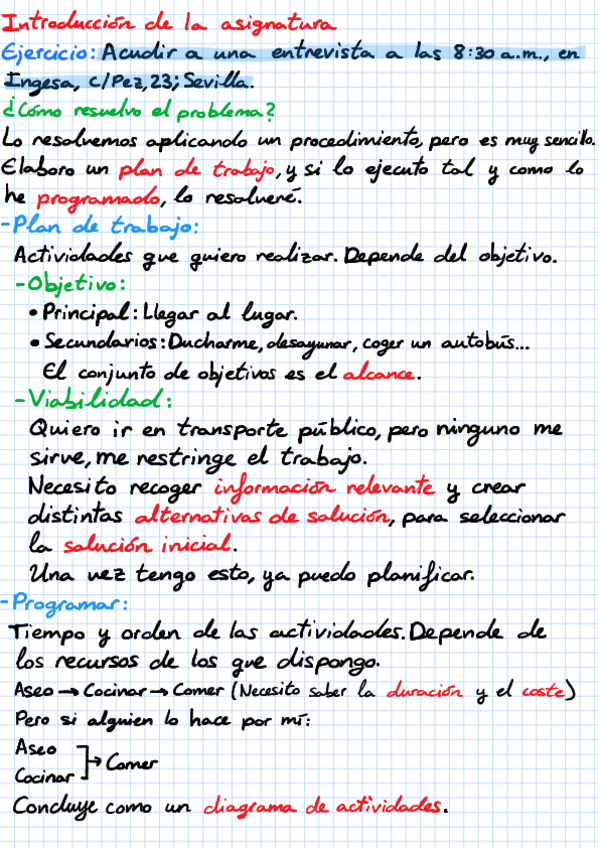 Introducción de la asignatura
Ejercicio: Acudir a una entrevista a las 8:30 a.m., en
Ingesa, c/Pez, 23; Sevilla.
¿Cómo resuelvo el problema?
Lo resolvemos aplicando un procedimiento, pero es muy sencillo.
Elaboro un plan de trabajo, y si lo ejecuto tal y como lo
he programado, lo resolveré.
-Plan de trabajo:
Actividades que quiero realizar. Depende del objetivo.
-Objetivo:
• Principal: Llegar al lugar.
• Secundarios: Ducharme, desayunar, coger un autobús...
El conjunto de objetivos es el alcance.
-Viabilidad:
Quiero ir en transporte público, pero ninguno me
sirve, me restringe el trabajo.
Necesito recoger información relevante y crear
distintas alternativas de solución, para seleccionar
la solución inicial.
Una vez tengo esto, ya puedo planificar.
-Programar:
Tiempo y orden de las actividades. Depende de
los recursos de los que dispongo.
Aseo → Cocinar → Comer (Necesito saber la duración y el coste)
Pero si alguien lo hace por mí:
Aseo
Cocinar → Comer
Concluye como un diagrama de actividades.